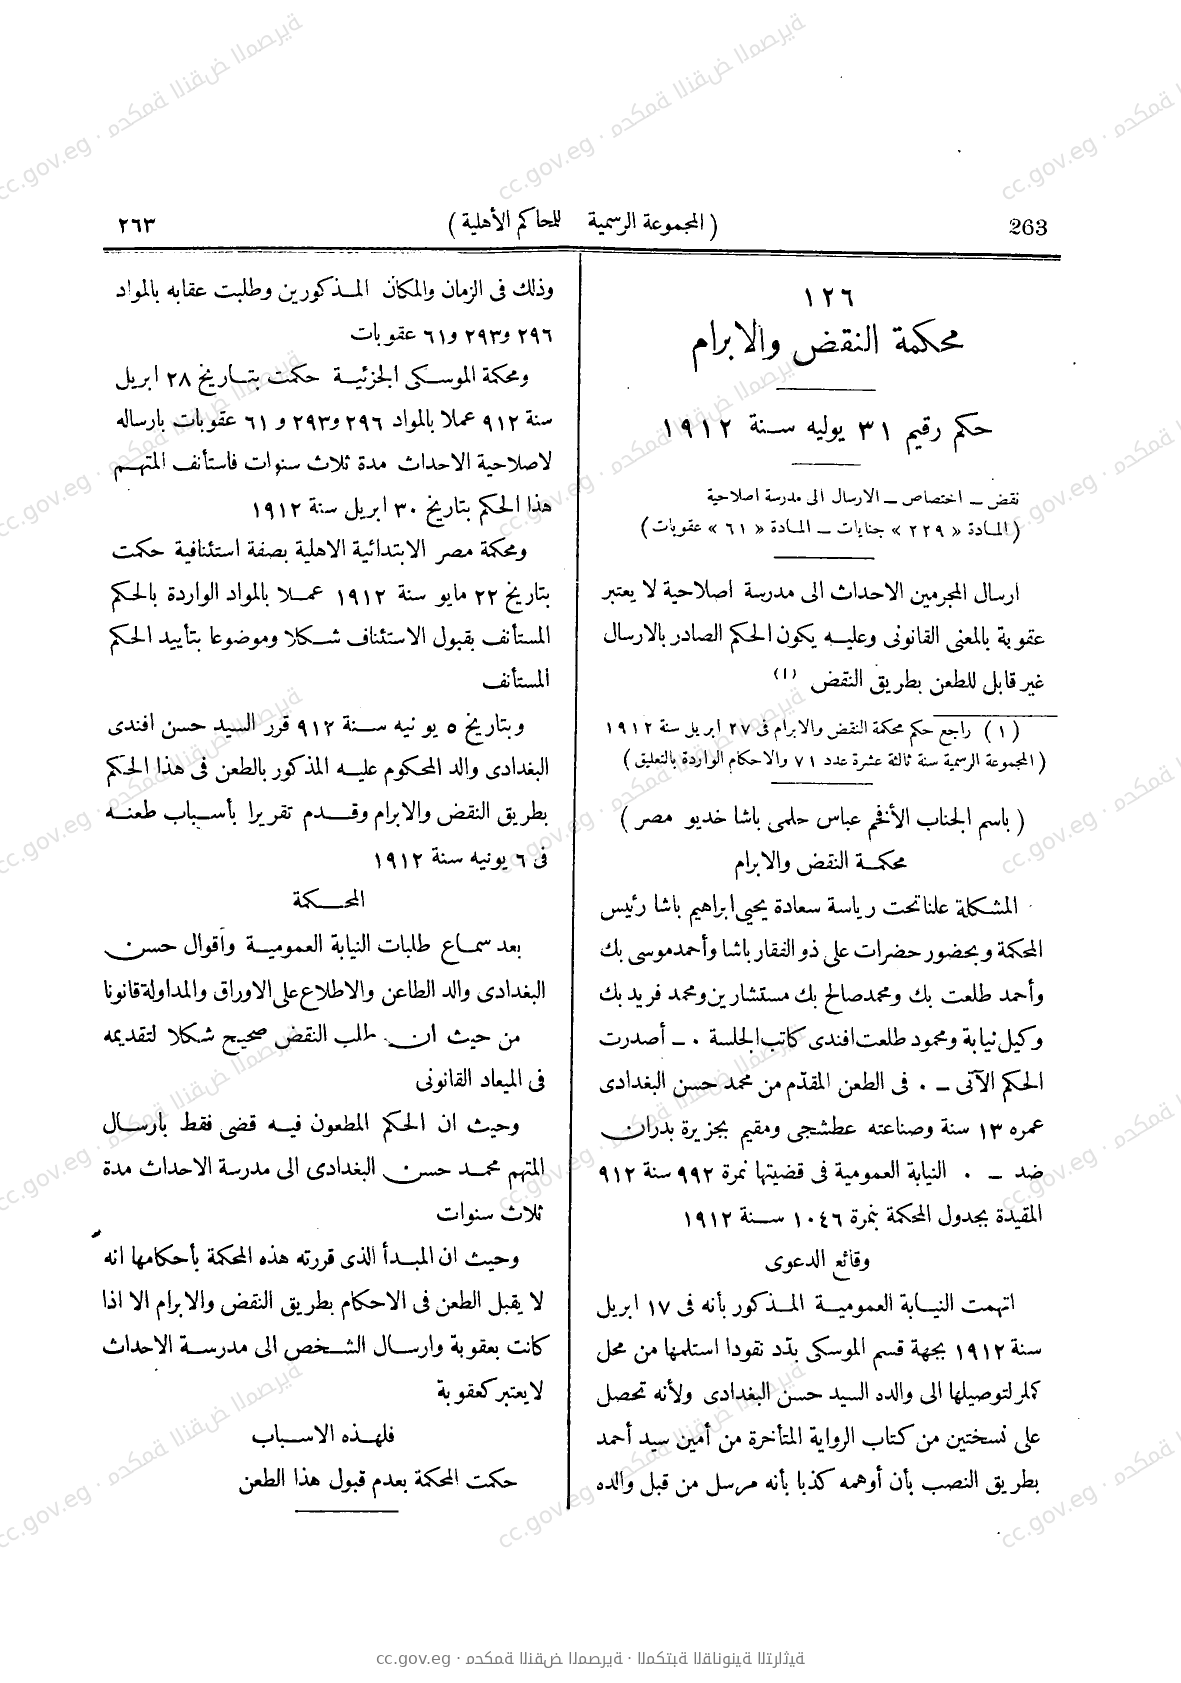 263
( المجموعة الرسمية للمحاكم الأهلية )
٢٦٣
١٢٦
محكمة النقض والابرام
حكم رقيم ٣١ يوليه سنة ١٩١٢
نقض – اختصاص – الارسال الى مدرسة اصلاحية
( المادة « ٢٢٩ » جنايات – المادة « ٦١ » عقوبات )
ارسال المجرمين الاحداث الى مدرسة اصلاحية لا يعتبر
عقوبة بالمعنى القانونى وعليه يكون الحكم الصادر بالارسال
غير قابل للطعن بطريق النقض (١)
( ١ ) راجع حكم محكمة النقض والابرام فى ٢٧ ابريل سنة ١٩١٢
( المجموعة الرسمية سنة ثالثة عشرة عدد ٧١ والاحكام الواردة بالتعليق )
( باسم الجناب الأفخم عباس حلمى باشا خديو مصر )
محكمة النقض والابرام
المشكلة علنا تحت رياسة سعادة يحيى ابراهيم باشا رئيس
المحكمة وبحضور حضرات على ذو الفقار باشا وأحمد موسى بك
وأحمد طلعت بك ومحمد صالح بك مستشارين ومحمد فريد بك
وكيل نيابة ومحمود طلعت افندى كاتب الجلسة . – أصدرت
الحكم الآتى – . فى الطعن المقدّم من محمد حسن البغدادى
عمره ١٣ سنة وصناعته عطشجى ومقيم بجزيرة بدران
ضد – . النيابة العمومية فى قضيتها نمرة ٩٩٢ سنة ٩١٢
المقيدة بجدول المحكمة بنمرة ١٠٤٦ سنة ١٩١٢
وقائع الدعوى
اتهمت النيابة العمومية المذكور بأنه فى ١٧ ابريل
سنة ١٩١٢ بجهة قسم الموسكى بدّد نقودا استلمها من محل
كلر لتوصيلها الى والده السيد حسن البغدادى ولأنه تحصل
على نسختين من كتاب الرواية المتأخرة من أمين سيد أحمد
بطريق النصب بأن أوهمه كذبا بأنه مرسل من قبل والده
وذلك فى الزمان والمكان المذكورين وطلبت عقابه بالمواد
٢٩٦ و٢٩٣ و٦١ عقوبات
ومحكمة الموسكى الجزئية حكمت بتاريخ ٢٨ ابريل
سنة ٩١٢ عملا بالمواد ٢٩٦ و٢٩٣ و ٦١ عقوبات بارساله
لاصلاحية الاحداث مدة ثلاث سنوات فاستأنف المتهم
هذا الحكم بتاريخ ٣٠ ابريل سنة ١٩١٢
ومحكمة مصر الابتدائية الاهلية بصفة استئنافية حكمت
بتاريخ ٢٢ مايو سنة ١٩١٢ عملا بالمواد الواردة بالحكم
المستأنف بقبول الاستئناف شكلا وموضوعا بتأييد الحكم
المستأنف
وبتاريخ ٥ يونيه سنة ٩١٢ قرر السيد حسن افندى
البغدادى والد المحكوم عليه المذكور بالطعن فى هذا الحكم
بطريق النقض والابرام وقدم تقريرا بأسباب طعنه
فى ٦ يونيه سنة ١٩١٢
المحكمة
بعد سماع طلبات النيابة العمومية وأقوال حسن
البغدادى والد الطاعن والاطلاع على الاوراق والمداولة قانونا
من حيث ان طلب النقض صحيح شكلا لتقديمه
فى الميعاد القانونى
وحيث ان الحكم المطعون فيه قضى فقط بارسال
المتهم محمد حسن البغدادى الى مدرسة الاحداث مدة
ثلاث سنوات
وحيث ان المبدأ الذى قررته هذه المحكمة بأحكامها انه
لا يقبل الطعن فى الاحكام بطريق النقض والابرام الا اذا
كانت بعقوبة وارسال الشخص الى مدرسة الاحداث
لا يعتبر كعقوبة
فلهذه الاسباب
حكمت المحكمة بعدم قبول هذا الطعن
cc.gov.eg · محكمة النقض المصرية · المكتبة القانونية التراثية